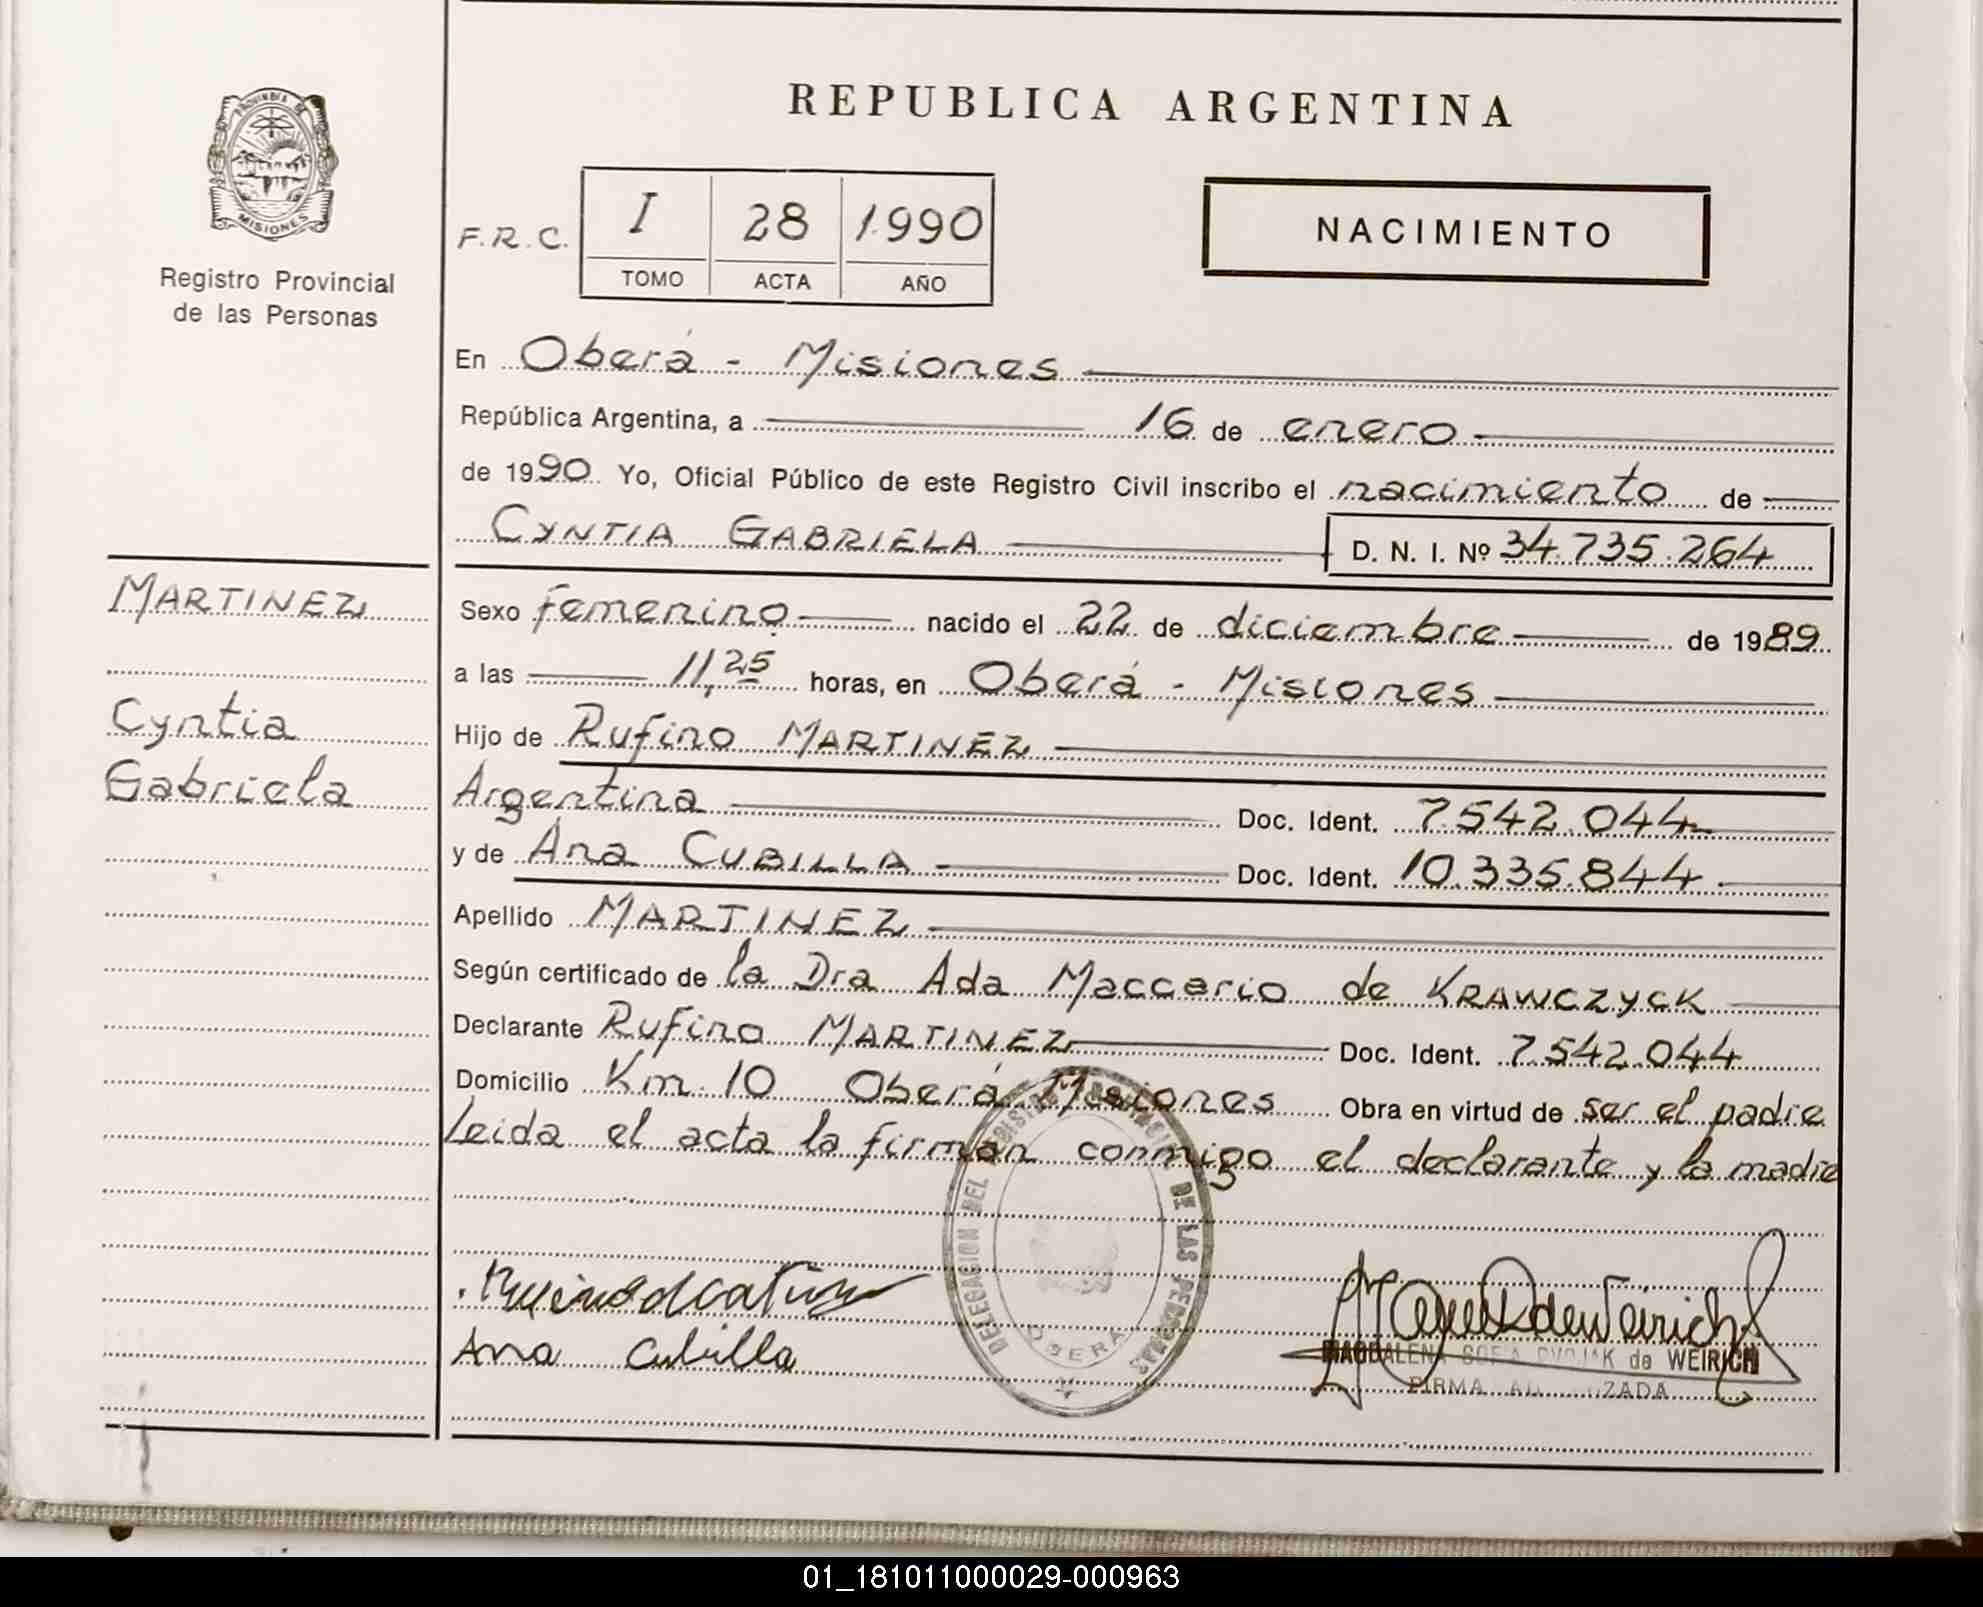 REPUBLICA ARGENTINA
PROVINCIA DE
MISIONES
Registro Provincial
de las Personas
F.R.C.
I 28 1.990
TOMO ACTA AÑO
NACIMIENTO
En Oberá - Misiones
República Argentina, a 16 de enero
de 1990. Yo, Oficial Público de este Registro Civil inscribo el nacimiento de
CYNTIA GABRIELA D. N. I. Nº 34.735.264
MARTINEZ
Cyntia
Gabriela
Sexo femenino nacido el 22 de diciembre de 1989
a las 11,25 horas, en Oberá - Misiones
Hijo de Rufino MARTINEZ
Argentina Doc. Ident. 7.542.044
y de Ana CUBILLA Doc. Ident. 10.335.844
Apellido MARTINEZ
Según certificado de la Dra Ada Maccario de KRAWCZYCK
Declarante Rufino MARTINEZ Doc. Ident. 7.542.044
Domicilio Km. 10 Oberá Misiones Obra en virtud de ser el padre
Leida el acta la firman conmigo el declarante y la madre
DELEGACION DEL DE LAS PERSONAS
OBERA
Ana Cubilla
MAGDALENA SOFIA DVOJAK de WEIRICH
FIRMA AUTORIZADA
01_181011000029-000963